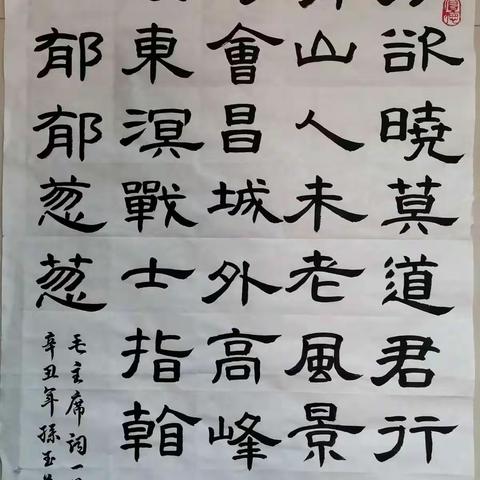 欲曉莫道君行
山人未老風景
會昌城外高峰
東溟戰士指看
郁郁葱葱
毛主席詞一
辛丑年孫玉